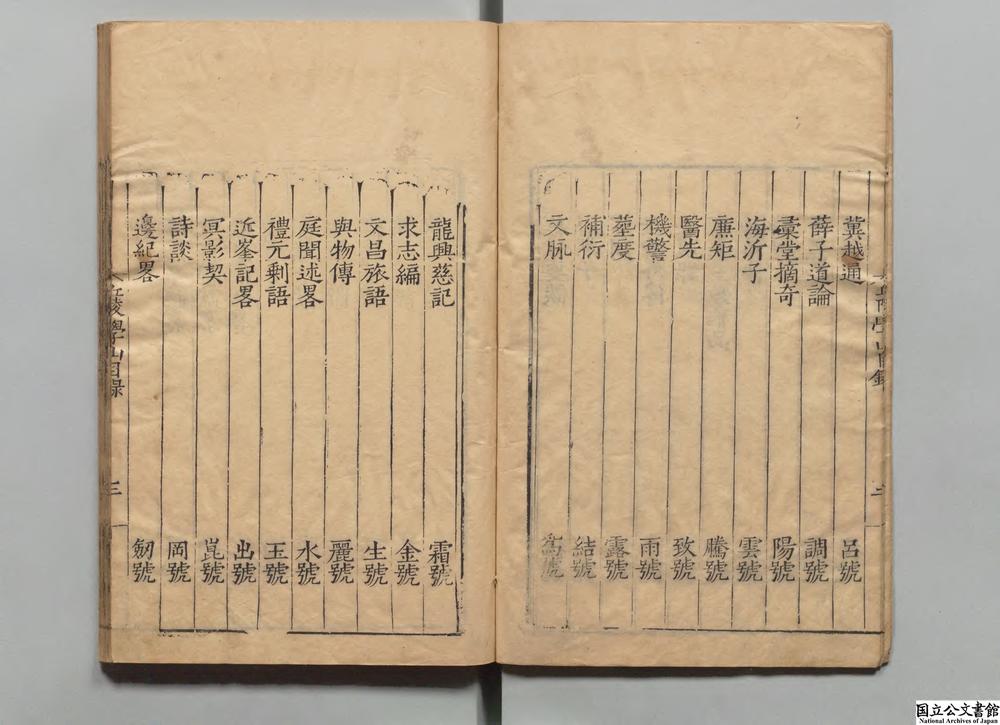 丘陵學山目錄 二
冀越通 呂號
薛子道論 調號
彙堂摘奇 陽號
海沂子 雲號
廉矩 騰號
醫先 致號
機警 雨號
葬度 露號
補衍 結號
文脉 為號
龍興慈記 霜號
求志編 金號
文昌旅語 生號
與物傳 麗號
庭聞述畧 水號
禮元剩語 玉號
近峯記畧 出號
冥影契 崑號
詩談 岡號
邊紀畧 釼號
丘陵學山目録 三
国立公文書館
National Archives of Japan